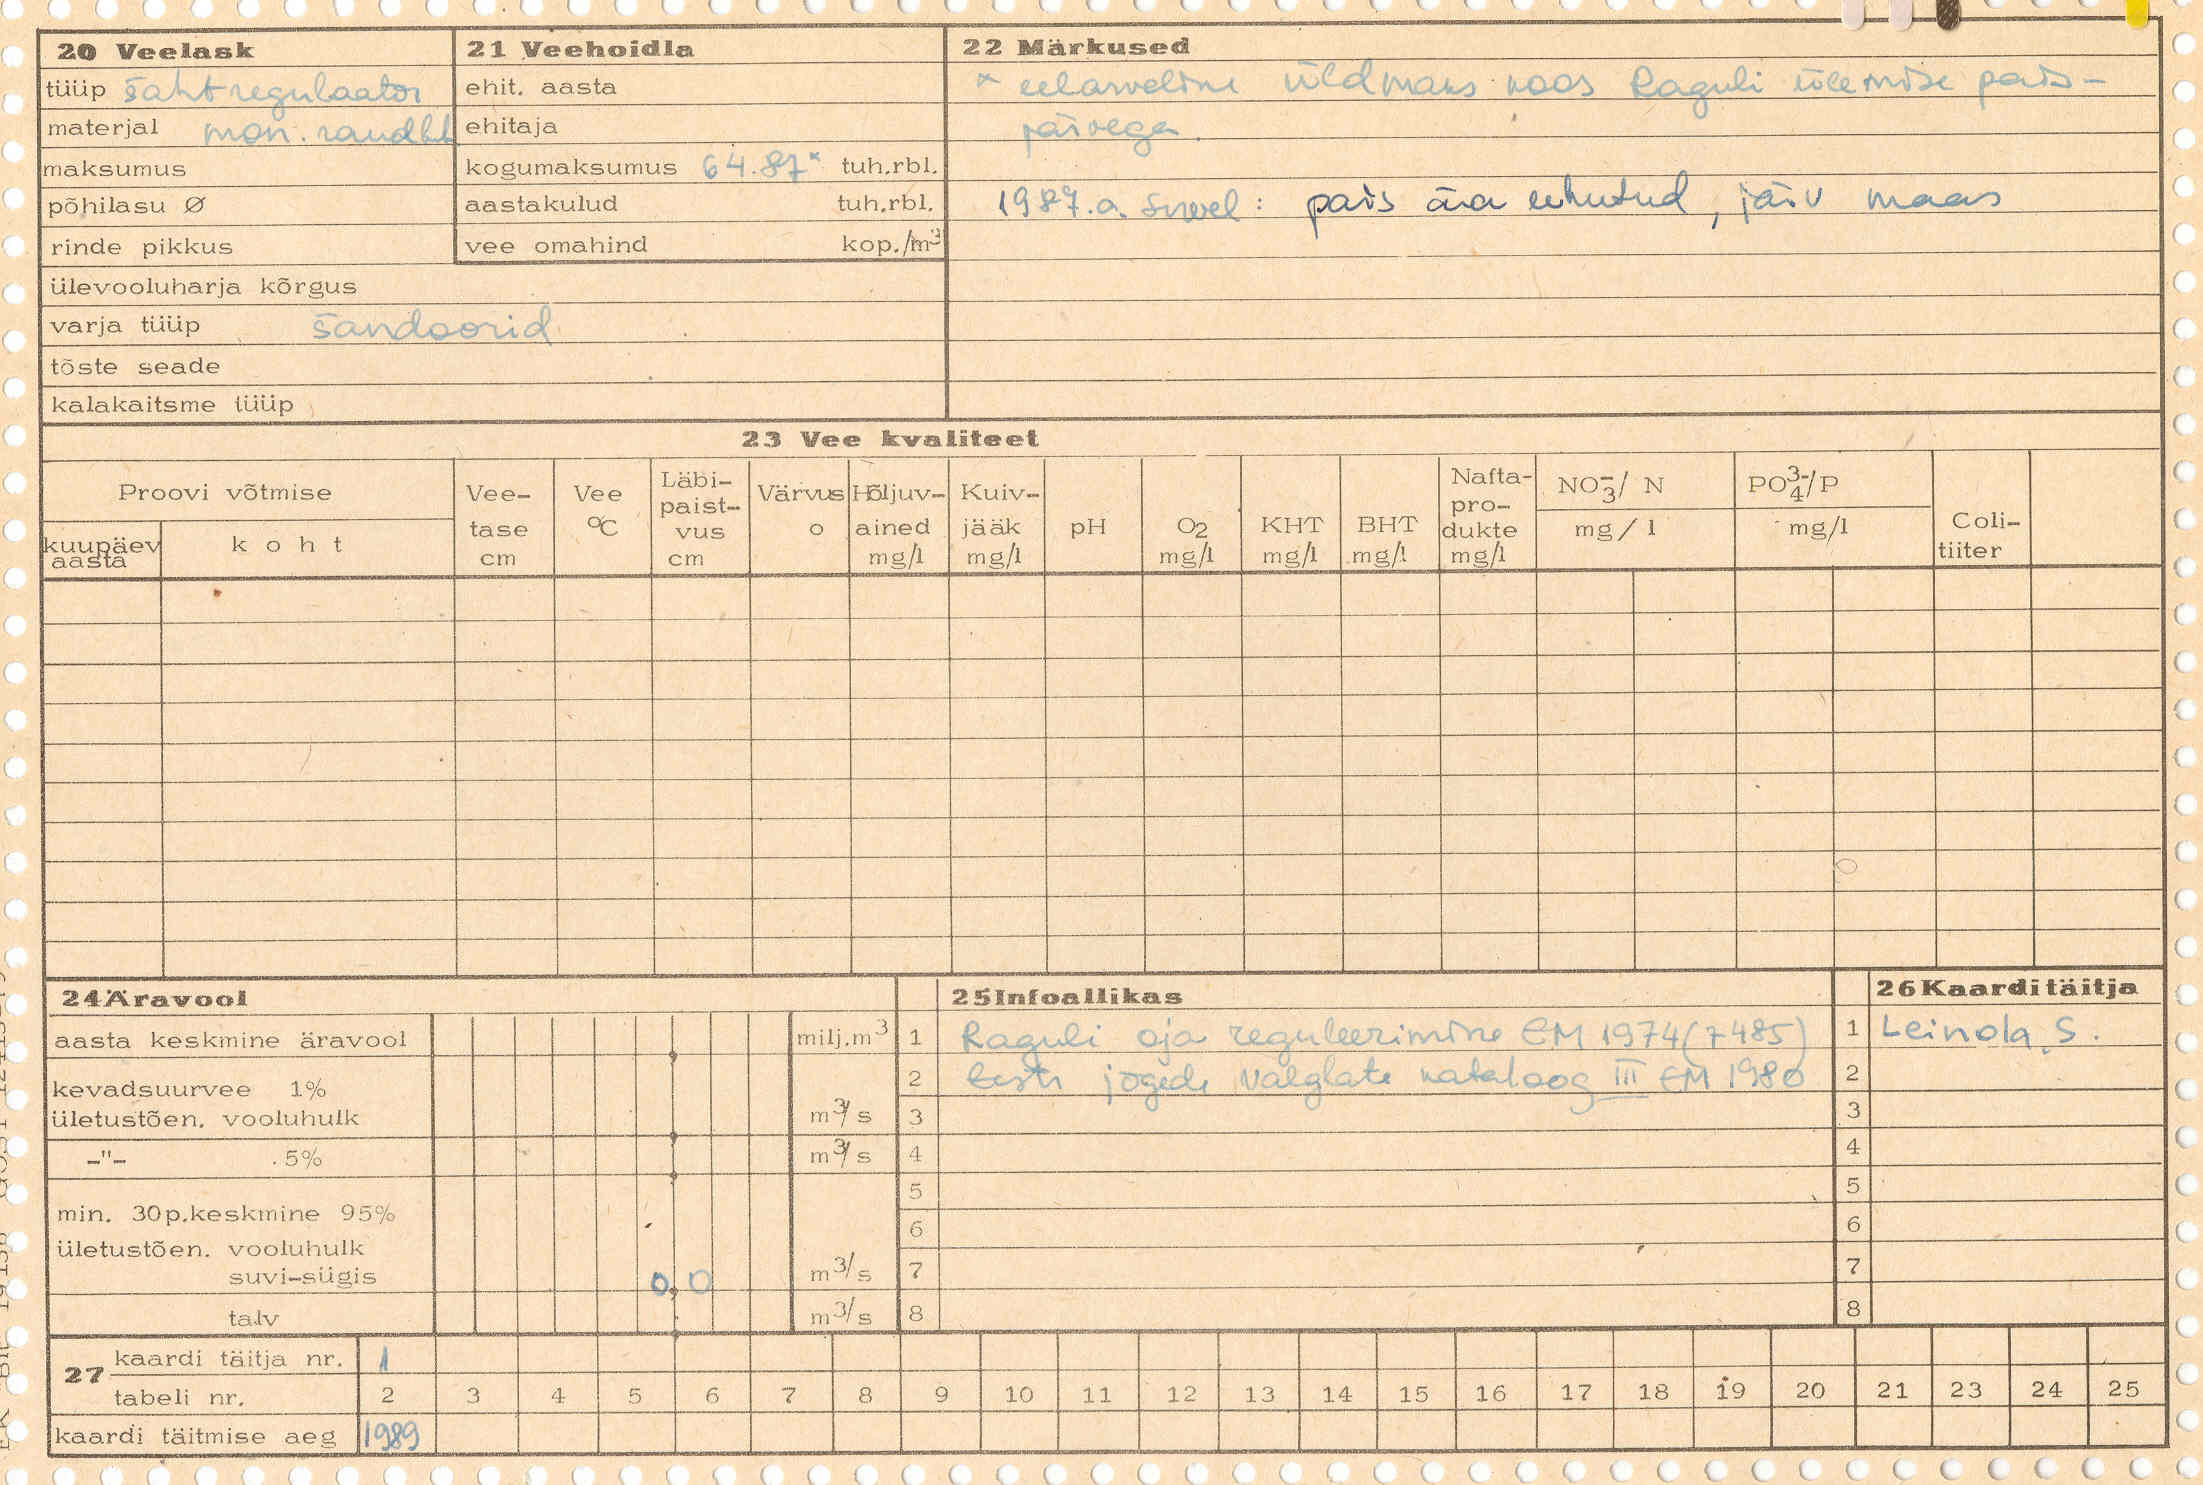 20 Veelask
tüüp šahtregulaator
materjal mon. raudbet
maksumus
põhilasu Ø
rinde pikkus
ülevooluharja kõrgus
varja tüüp šandoorid
tõste seade
kalakaitsme tüüp
21 Veehoidla
ehit. aasta
ehitaja
kogumaksumus 64.87* tuh.rbl.
aastakulud tuh.rbl.
vee omahind kop./m³
22 Märkused
* eelarveline üldmaks koos Raguli ülemise pais-
järvega.
1987.a. suvel: pais ära ehitatud, järv maas
23 Vee kvaliteet
Proovi võtmise
kuupäev aasta
koht
Vee-
tase
cm
Vee
°C
Läbi-
paist-
vus
cm
Värvus
o
Hõljuv-
ained
mg/l
Kuiv-
jääk
mg/l
pH
O₂
mg/l
KHT
mg/l
BHT
mg/l
Nafta-
pro-
dukte
mg/l
NO₃⁻/ N
mg/l
PO₄³⁻/P
mg/l
Coli-
tiiter
24 Äravool
aasta keskmine äravool milj.m³
kevadsuurvee 1%
ületustõen. vooluhulk m³/s
-"- 5% m³/s
min. 30p.keskmine 95%
ületustõen. vooluhulk
suvi-sügis 0,0 m³/s
talv m³/s
25 Infoallikas
1 Raguli oja reguleerimine EM 1974(7485)
2 Eesti jõgede valglate kataloog III EM 1980
3
4
5
6
7
8
26 Kaarditäitja
1 Leinola, S.
2
3
4
5
6
7
8
27
kaardi täitja nr. 1
tabeli nr. 2 3 4 5 6 7 8 9 10 11 12 13 14 15 16 17 18 19 20 21 23 24 25
kaardi täitmise aeg 1989